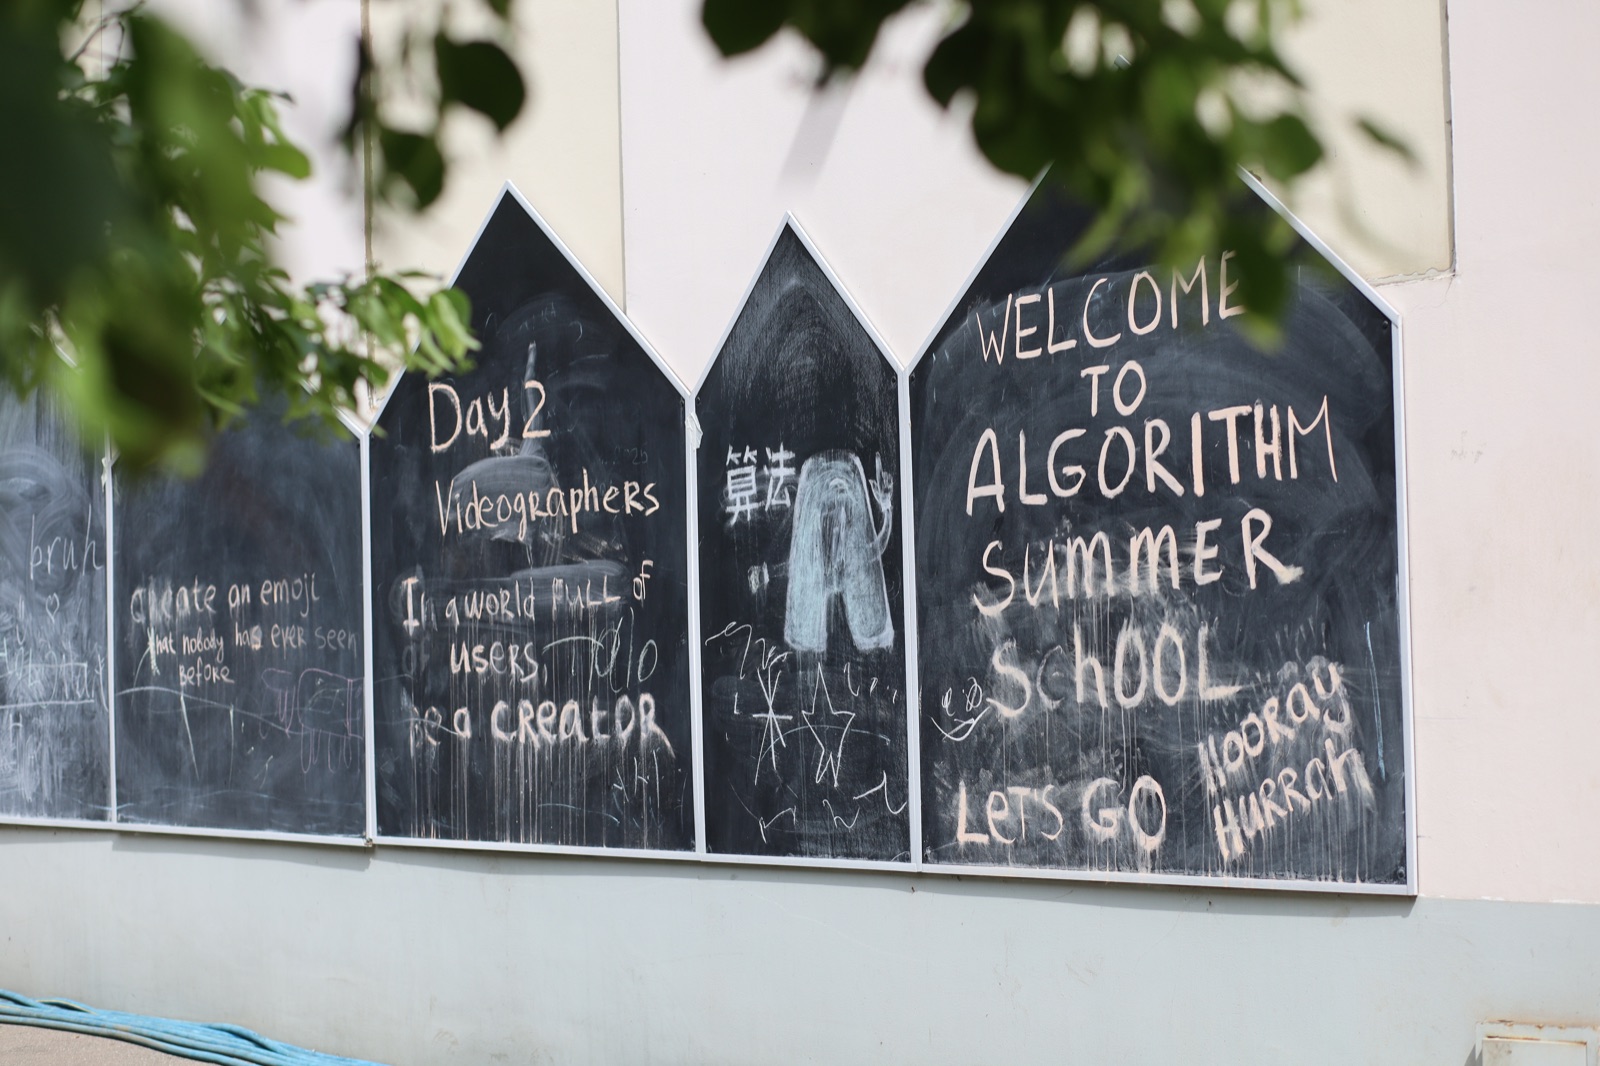 bruh
create an emoji
that nobody has ever seen
before
Day 2
Videographers
In a world full of
users,
be a creator
算法
A
WELCOME
TO
ALGORITHM
SUMMER
SchOOL
HOORAY
HURRAH
LET'S GO